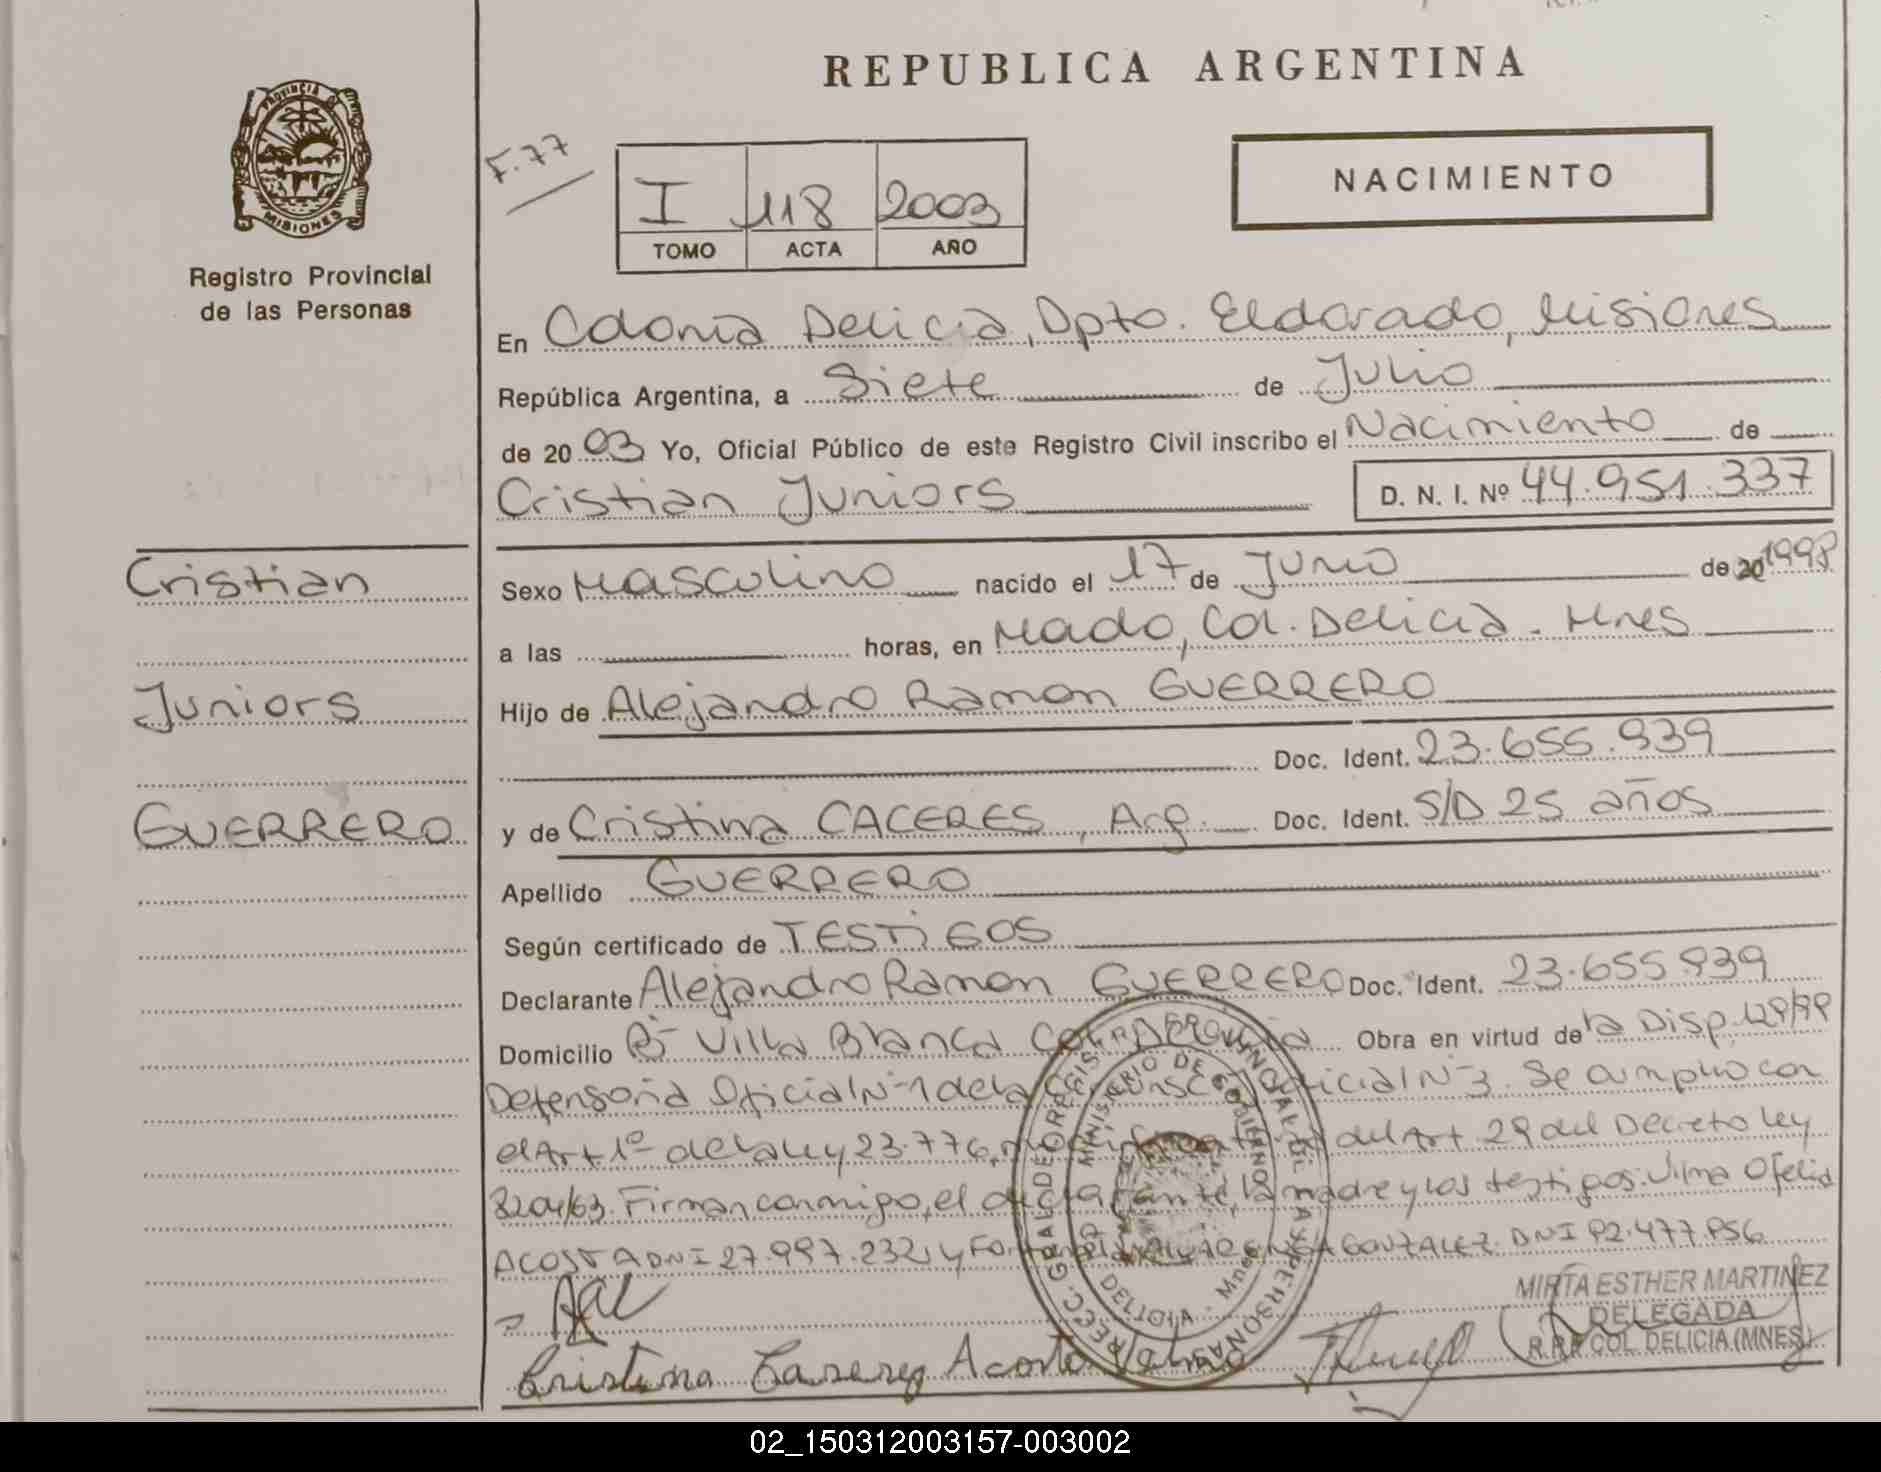 REPUBLICA ARGENTINA
PROVINCIA DE
MISIONES
Registro Provincial
de las Personas
F. 77
I 118 2003
TOMO ACTA AÑO
NACIMIENTO
En Colonia Delicia, Dpto. Eldorado, Misiones
República Argentina, a Siete de Julio
de 2003 Yo, Oficial Público de este Registro Civil inscribo el Nacimiento de
Cristian Juniors D. N. I. Nº 44.951.337
Cristian
Juniors
GUERRERO
Sexo Masculino nacido el 17 de Junio de 20 1998
a las horas, en Mado, Col. Delicia. Mnes
Hijo de Alejandro Ramon GUERRERO
Doc. Ident. 23.655.939
y de Cristina CACERES, Arg. Doc. Ident. S/D 25 años
Apellido GUERRERO
Según certificado de TESTIGOS
Declarante Alejandro Ramon GUERRERO Doc. Ident. 23.655.939
Domicilio Bº Villa Blanca Obra en virtud de la Disp.
Defensoria Oficial Nº 1 de la Nº 3. Se cumplio con
el Art 1º de la ley 23.776, del Art. 29 del Decreto ley
8204/63. Firman conmigo, el declarante, la madre y los testigos: Vilma Ofelia
ACOSTA DNI 27.997.232, y GONZALEZ. DNI
MINISTERIO DE GOBIERNO
DELICIA - Mnes
MIRTA ESTHER MARTINEZ
DELEGADA
R.P.P COL. DELICIA (MNES)
Cristina Caserez Acosta Vilma
02_150312003157-003002